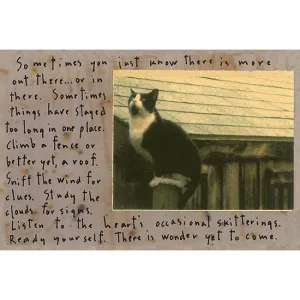 Sometimes you just know there is more
out there...or in
there. Sometimes
things have stayed
too long in one place.
Climb a fence or
better yet, a roof.
Sniff the wind for
clues. Study the
clouds for signs.
Listen to the heart's occasional skitterings.
Ready yourself. There is wonder yet to come.